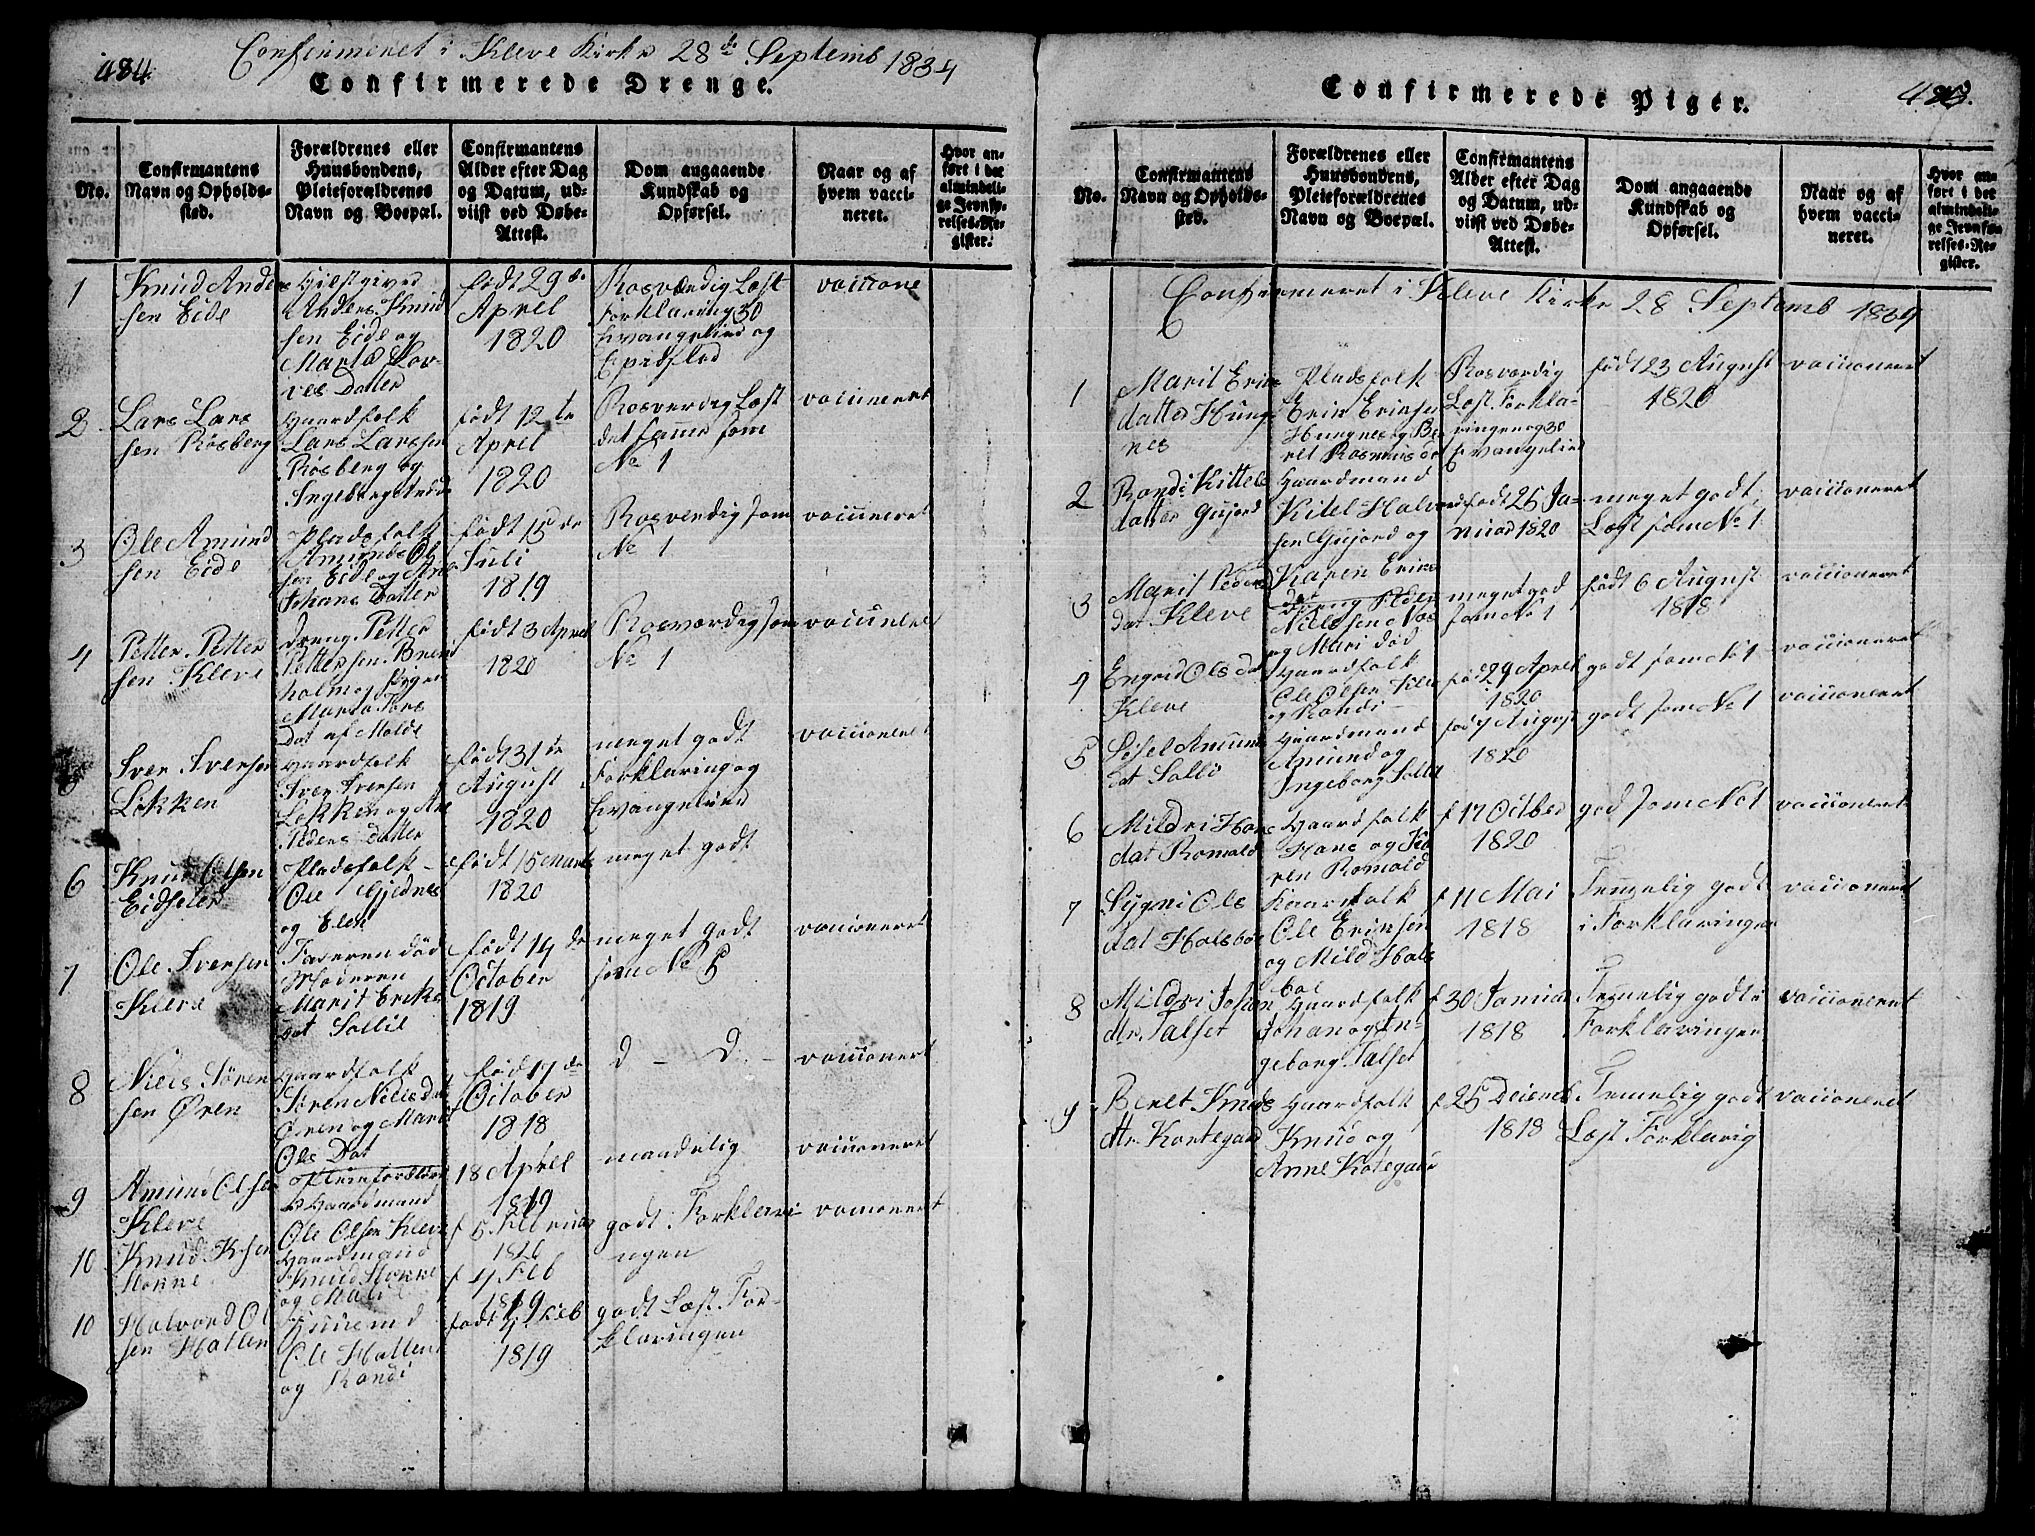 484
Confirmeret i Kleve Kirke 28de Septemb 1834
Confirmerede Drenge.
No.
Confirmantens
Navn og Opholds-
sted.
Forældrenes eller
Huusbondens,
Pleieforældrenes
Navn og Boepæl.
Confirmantens
Alder efter Dag
og Datum, ud-
viist ved Døbe-
Attest.
Dom angaaende
Kundskab og
Opførsel.
Naar og af
hvem vacci-
neret.
Hvor an-
ført i det
almindeli-
ge Jevnfø-
relses-Re-
gister.
1
Knud Anders
sen Eide
Anders Knud
sen Eide og
Datter
født 29de
April
1820
Rosværdig Læst
Forklaring 30
Evangelier og
2
Lars Lars
sen Røsberg
Gaardfolk
Lars Larssen
Røsberg og
født 12te
April
1820
Rosverdig Læst
det samme som
No 1
vaccineret
3
Ole Amund
sen Eide
Pladsfolk
Amund Ol
sen Eide og Ane
Johans Datter
født 15de
Juli
1819
Rosverdig som
No 1
vaccineret
4
Petter Petter
sen Kleve
Dreng Petter
Pettersen
holm og Pigen
Dat af Molde
født 3 April
1820
Rosværdig som
No 1
vaccineret
Iver Iversen
Løkken
Gaardfolk
Iver Iversen
Løkken og Ane
Peders Datter
født 31te
August
1820
meget godt
Forklaring og
Evangelierne
vaccioneret
6
Knud Olsen
Pladsfolk
Ole Gjednes
og Elen
født 15 Marts
1820
meget godt
7
Ole Iversen
Kleve
Faderen død
Moderen
Marit Eriks
Dat Sollie
født 14de
October
1819
meget godt
som No 5
vaccioneret
8
Niels Søren
sen Øren
Gaardfolk
Søren Niels
Øren og Marit
Ols Dat
født 17de
October
1818
D - D -
vaccionert
9
Amund Olsen
Kleve
Gaardmand
Ole Olsen Kleve
18 April
1819
maadelig
vaccioneret
10
Knud K.sen
Gaardmand
Knud
og Mali
f 5 Februar
1820
f 4 Feb
1819
godt Forklari-
ngen
10
Halvord Ol
sen Hatlen
Ole Hatlen
og Randi
født 4 Feb
1819
godt Læst For-
klaringen
Confirmerede Piger.
No.
Confirmantens
Navn og Opholds-
sted.
Forældrenes eller
Huusbondens,
Pleieforældrenes
Navn og Boepæl.
Confirmantens
Alder efter Dag
og Datum, ud-
viist ved Døbe-
Attest.
Dom angaaende
Kundskab og
Opførsel.
Naar og af
hvem vacci-
neret.
Hvor an-
ført i det
almindeli-
ge Jevnfø-
relses-Re-
gister.
Confirmeret i Kleve Kirke 28 Septemb 1834
1
Marit Eriks
datter Hung
nes
Pladsfolk
Erik Eriksen
Hungnes og Be
ret Rasmus
Rosværdig
Læst Forkla-
ringen og 30
Evangelier
født 23 August
1820
vaccioneret
2
Randi Kittels
datter Gujord
Gaardmand
Kitel Halvord
sen Gujord og
Karen Eriks
dat
født 25 Ja-
nuar 1820
meget godt
Læst som No 1
vaccioneret
3
Marit Peders
dat Kleve
Dreng Peder
Nielsen
og Mari død
meget god
som No 1
født 6 August
1818
vaccioneret
4
Engrid Ols dat
Kleve
Gaardfolk
Ole Olsen Kleve
og Randi
født 29 April
1820
godt som No 1
vaccioneret
5
Sisel Amunds
dat Solli
Gaardmand
Amund og
Ingeborg Solli
født 7 August
1820
godt som No 1
vaccioneret
6
Mildri Hans
dat Romald
Gaardfolk
Hans og Ka
ren Romald
f 17 October
1820
god som No 1
vaccioneret
7
Sygni Ols
dat Holsbøe
Kaarfolk
Ole Eriksen
og Mild Hols
bøe
f 11 Mai
1818
Temmelig godt
i Forklaringen
vaccioneret
8
Mildri Johan
dtr. Talset
Gaardfolk
Johan og In-
geborg Talset
f 30 Januar
1818
Temmelig godt i
Forklaringen
vaccioneret
9
Beret Knuds
dtr. Kortegard
Gaardfolk
Knud og
Anne Kotegaar
f 25 Decemb
1818
Temelig godt
Læst Forklarig
vaccioneret